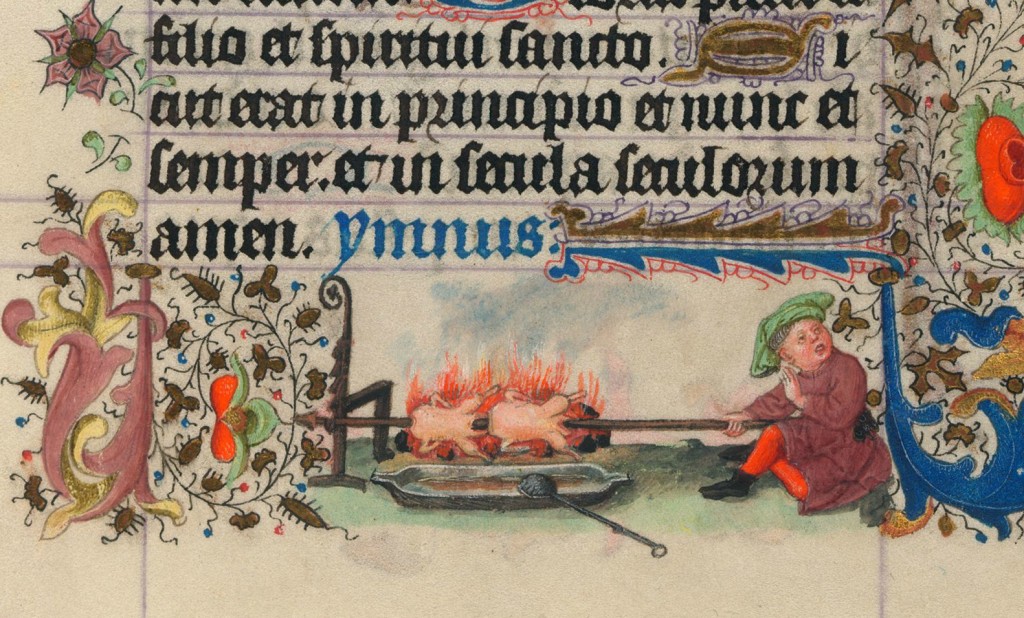 filio et spiritui sancto. Si
cut erat in principio et nunc et
semper. et in secula seculorum
amen. ymnus: